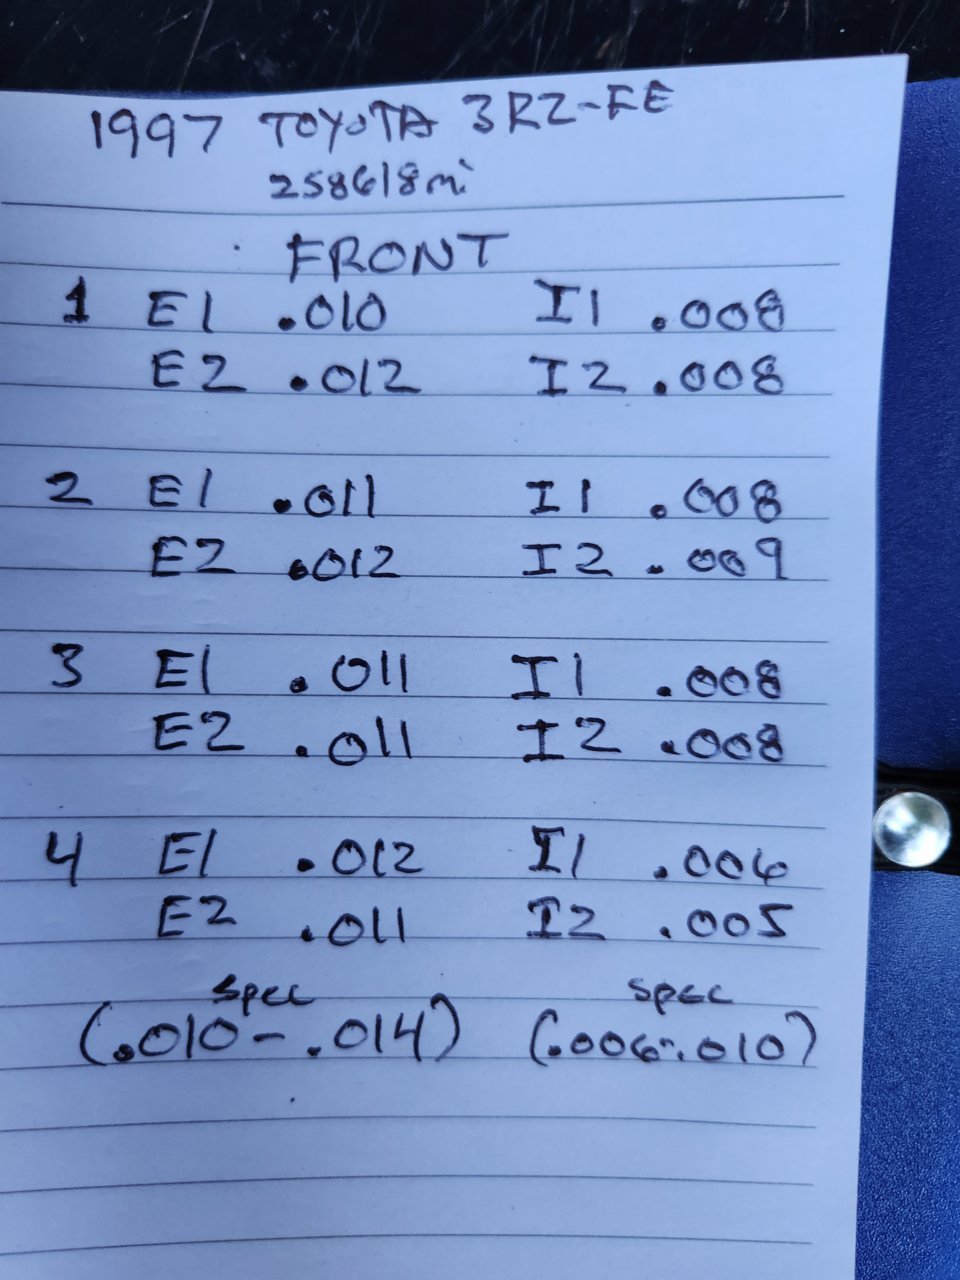 1997 TOYOTA 3RZ-FE
258618mi
FRONT
1 E1 .010 I1 .008
E2 .012 I2 .008
2 E1 .011 I1 .008
E2 .012 I2 .009
3 E1 .011 I1 .008
E2 .011 I2 .008
4 E1 .012 I1 .006
E2 .011 I2 .005
spec spec
(.010-.014) (.006-.010)